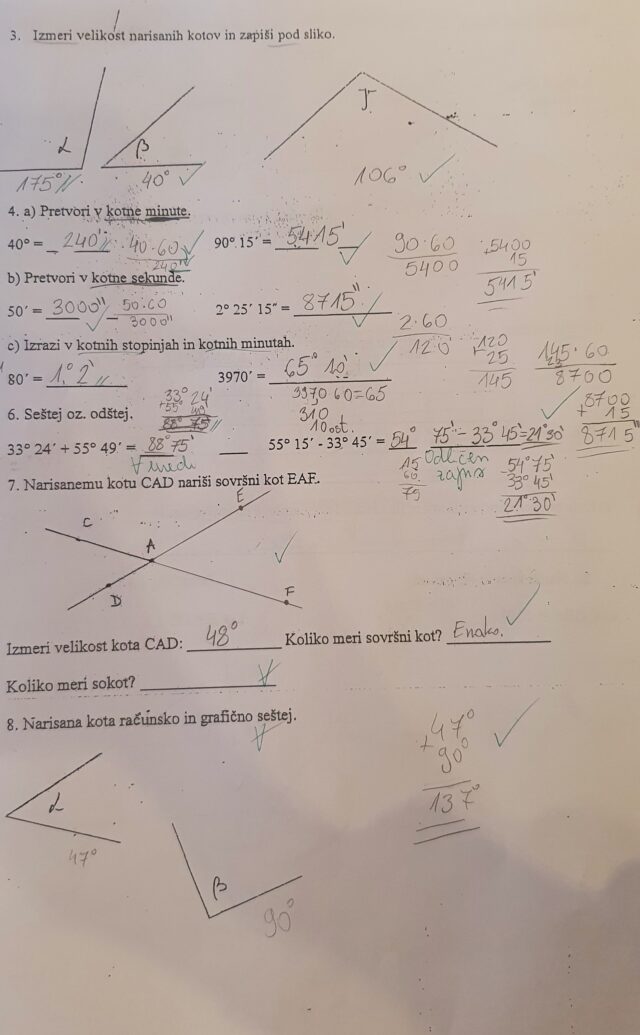 3. Izmeri velikost narisanih kotov in zapiši pod sliko.
α β γ
175° 40° 106°
4. a) Pretvori v kotne minute.
40° = 240' 40·60 90° 15' = 5415' 90·60 5400
240'' 5400 15
5415'
b) Pretvori v kotne sekunde.
50' = 3000'' 50·60 2° 25' 15" = 8715''
3000'' 2·60
120
c) Izrazi v kotnih stopinjah in kotnih minutah.
80' = 1° 2' 3970' = 65° 10' 120 145·60
+25 8700
3970:60=65 145
310 8700
10 ost. + 15
8715''
33° 24'
+55° 49'
88° 75'
6. Seštej oz. odštej.
33° 24' + 55° 49' = 88° 75' 55° 15' - 33° 45' = 54° 75' - 33° 45' = 21° 30'
uredi 15 Odličen 54° 75'
60 zapis 33° 45'
75 21° 30'
7. Narisanemu kotu CAD nariši sovršni kot EAF.
E
C
A
D F
Izmeri velikost kota CAD: 48° Koliko meri sovršni kot? Enako.
Koliko meri sokot?
8. Narisana kota računsko in grafično seštej.
47°
+ 90°
137°
α
47°
β
90°